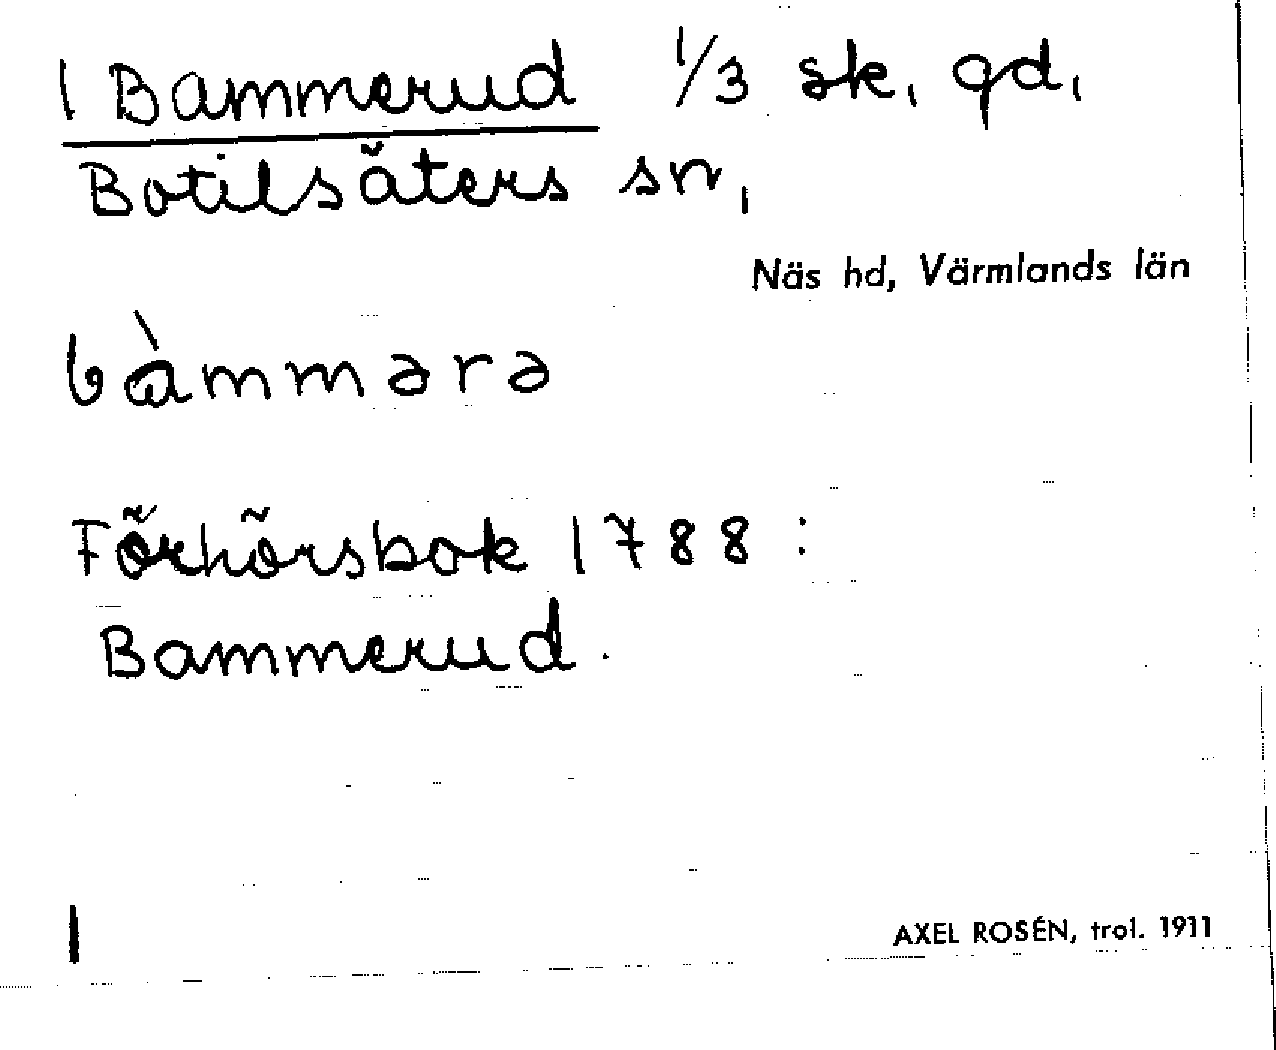 1 Bammerud 1/3 sk, gd,
Botilsäters sn,
Näs hd, Värmlands län
bàmmərə
Förhörsbok 1788:
Bammerud.
AXEL ROSÉN, trol. 1911